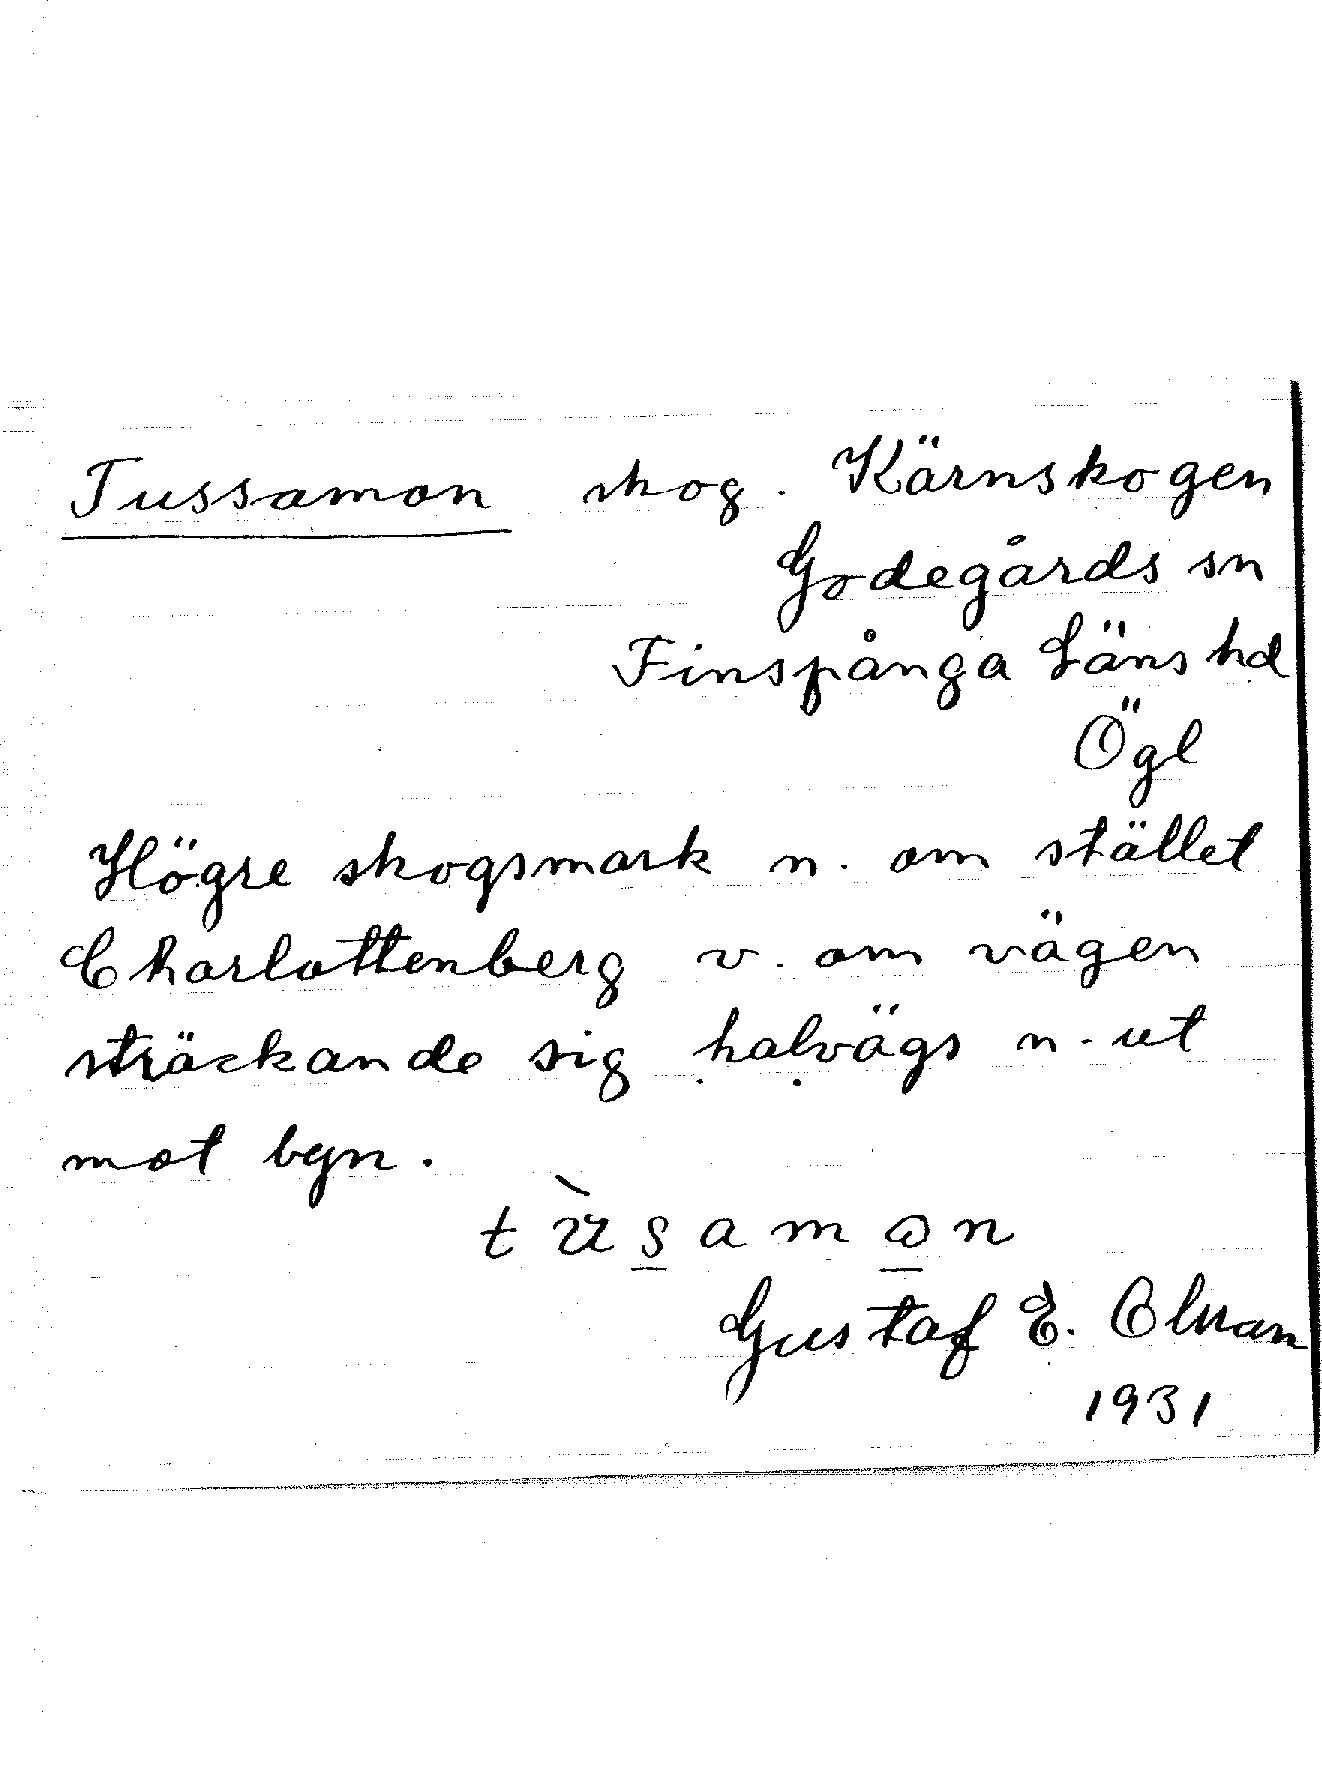 Tussamon skog. Kärnskogen
Godegårds sn
Finspånga Läns hd
Ögl
Högre skogsmark n. om stället
Charlottenberg v. om vägen
sträckande sig halvägs n. ut
mot byn.
Gustaf E.
1931